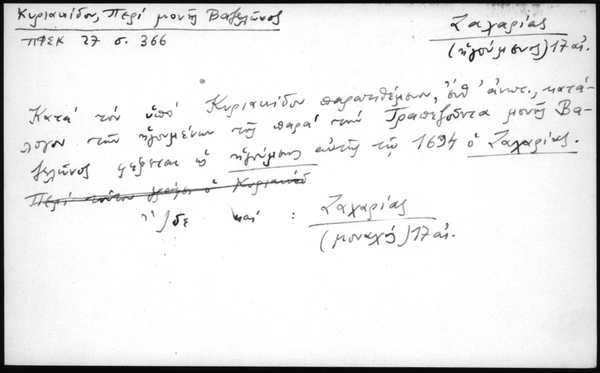 Κυριακίδου, Περί μονής Βαζελῶνος
ΠΦΣΚ 27 σ. 366
Ζαχαρίας
(ἡγούμενος) 17 αἰ.
Κατά τόν ὑπό Κυριακίδου παρατιθέμενον, ἔνθ' ἀνωτ., κατά-
λογον τῶν ἡγουμένων τῆς παρά τήν Τραπεζοῦντα μονῆς Βα-
ζελῶνος φέρεται ὡς ἡγούμενος αὐτῆς τῷ 1694 ὁ Ζαχαρίας.
Περί τούτου γράφει ὁ Κυριακίδ
ἴδε καί : Ζαχαρίας
(μοναχός) 17 αἰ.